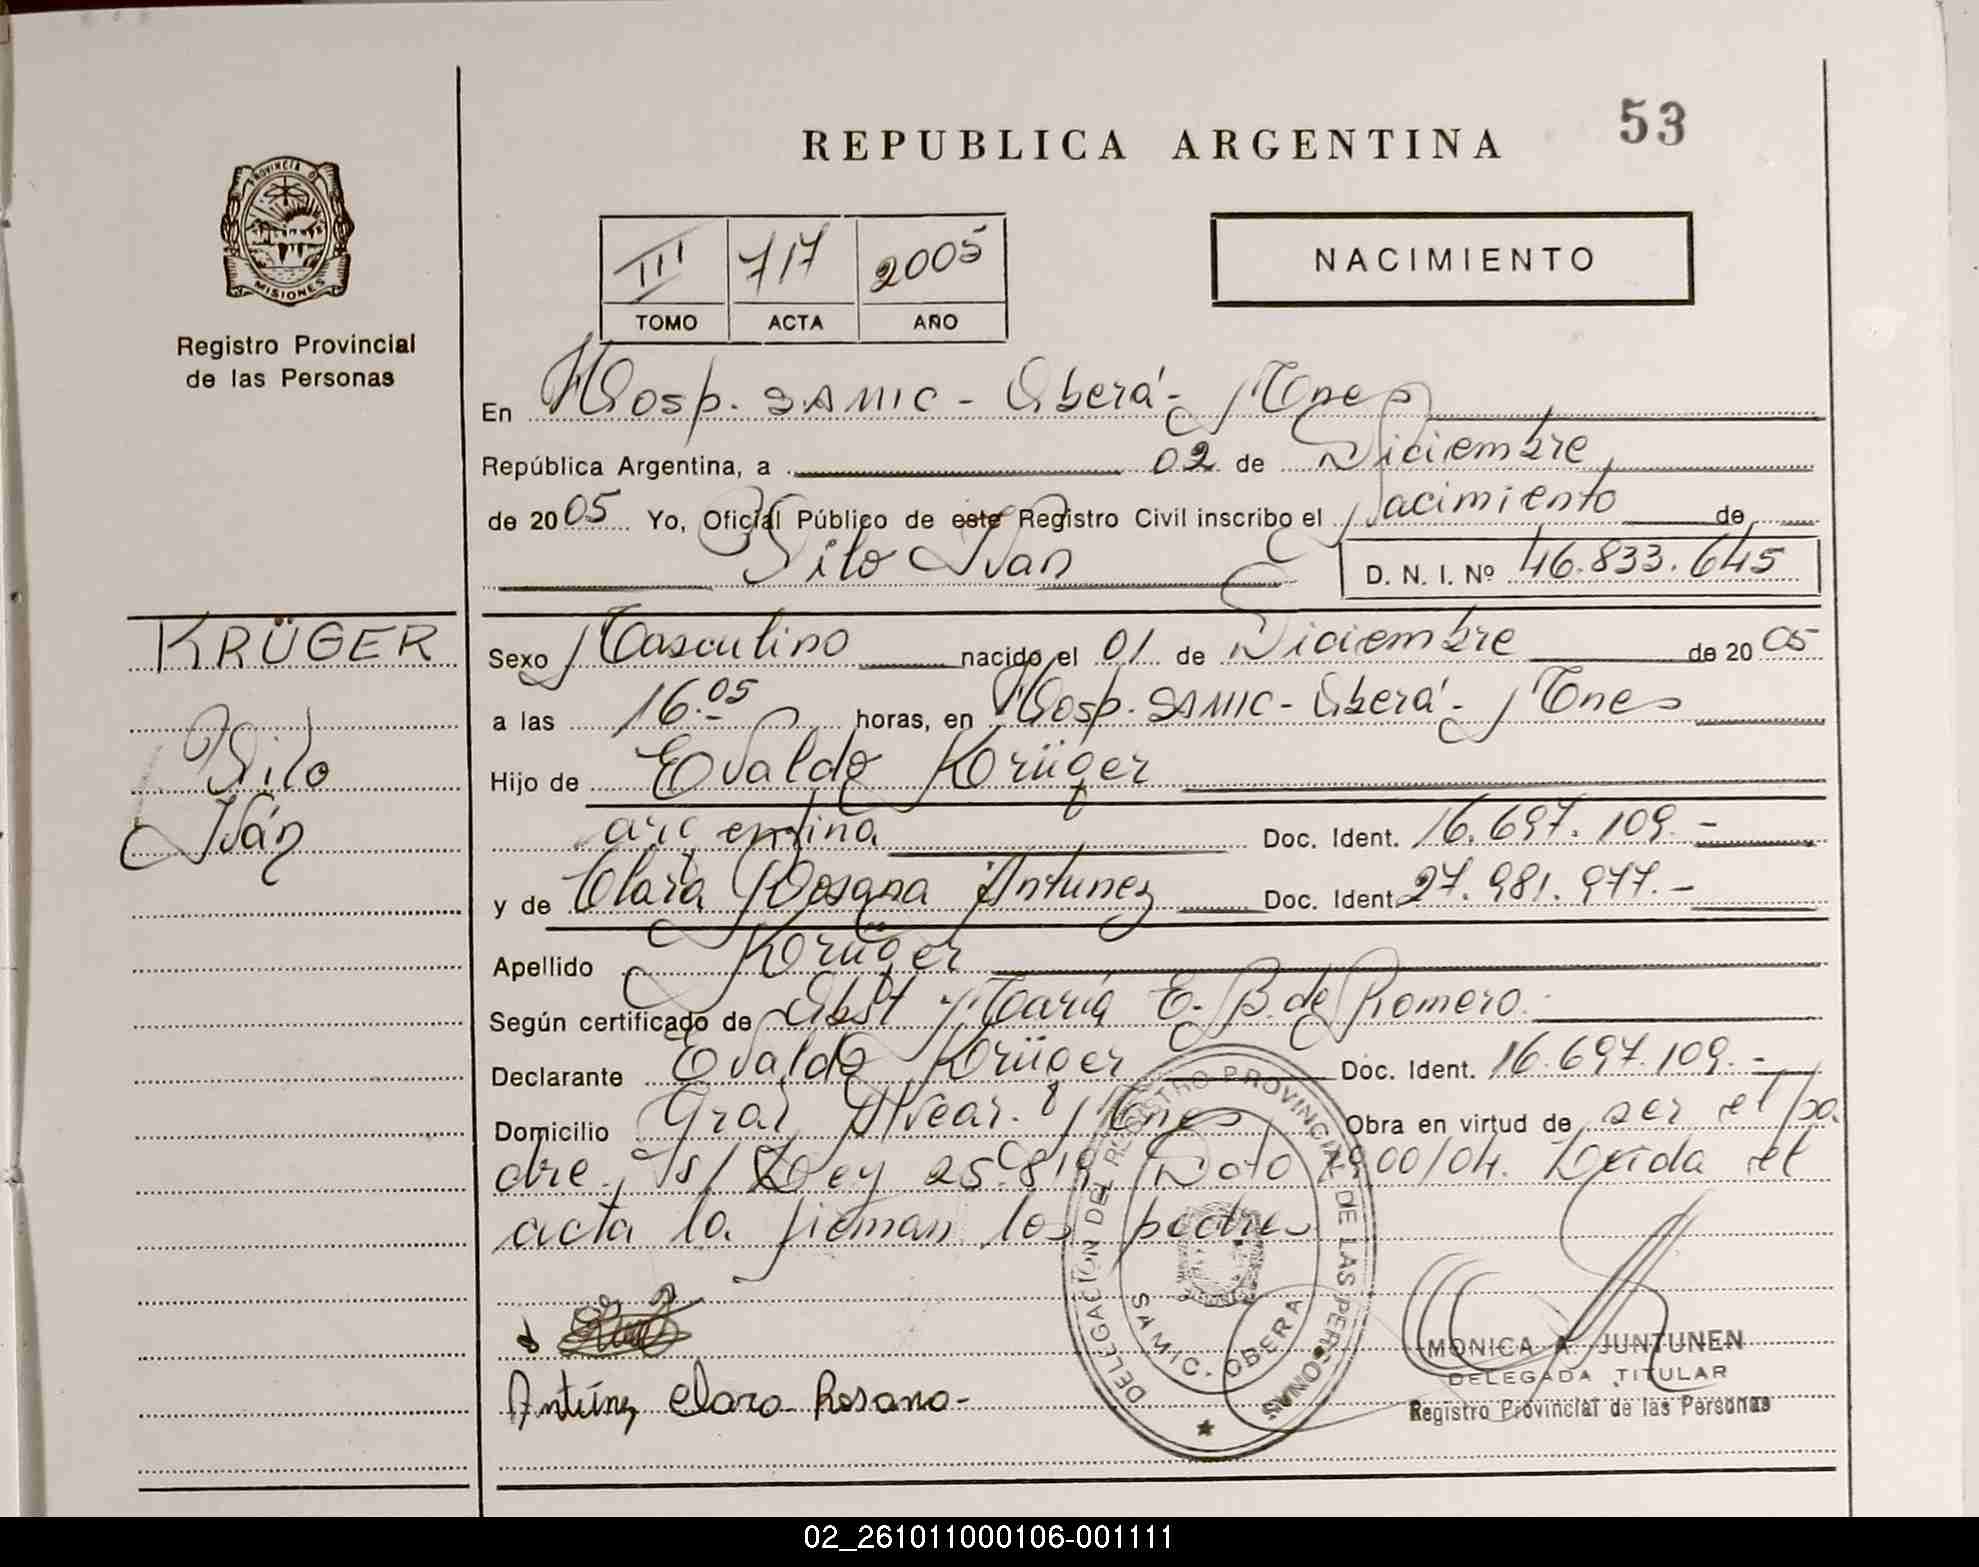 53
REPUBLICA ARGENTINA
PROVINCIA DE
MISIONES
Registro Provincial
de las Personas
III 717 2005
TOMO ACTA AÑO
NACIMIENTO
En Hosp. SAMIC - Oberá - Mnes
República Argentina, a 02 de Diciembre
de 2005 Yo, Oficial Público de este Registro Civil inscribo el Nacimiento de
Iván
D. N. I. Nº 46.833.645
KRÜGER
Iván
Sexo Masculino nacido el 01 de Diciembre de 2005
a las 16.05 horas, en Hosp. SAMIC - Oberá - Mnes
Hijo de Evaldo Krüger
argentina Doc. Ident. 16.697.109.-
y de Clara Rosana Antunez Doc. Ident. 27.981.977.-
Apellido Krüger
Según certificado de Obst María E. B. de Romero.
Declarante Evaldo Krüger Doc. Ident. 16.697.109.-
Domicilio Gral Alvear. Mnes Obra en virtud de ser el pa
dre. s/ Ley 25.819 Dto 1900/04. Leida el
acta la firman los padres
Antúnez Clara Rosana-
DELEGACION DEL REGISTRO PROVINCIAL DE LAS PERSONAS
SAMIC. OBERA
MONICA A. JUNTUNEN
DELEGADA TITULAR
Registro Provincial de las Personas
02_261011000106-001111